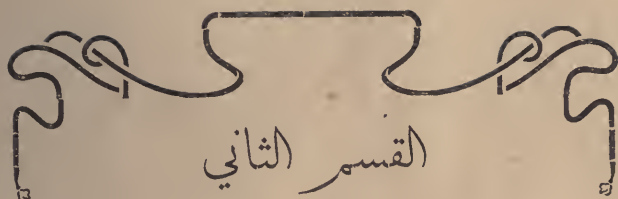 القسم الثاني